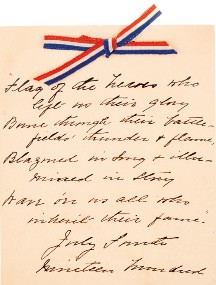 "Flag of the heroes who
left us their glory
Borne through their battle-
fields' thunder & flame,
Blazoned in song & illu-
mined in story
Wave on us all who
inherit their fame."
July Fourth
Nineteen hundred